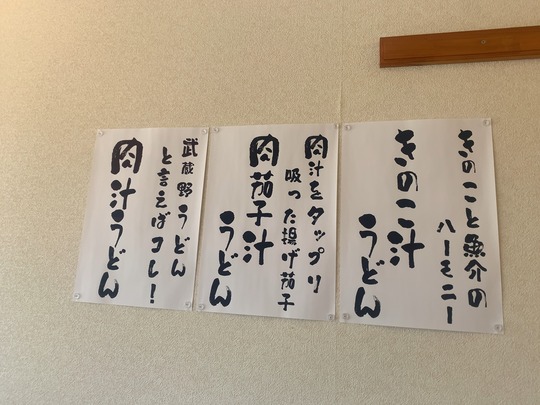 きのこと魚介の
ハーモニー
きのこ汁
うどん
肉汁をタップリ
吸った揚げ茄子
肉茄子汁
うどん
武蔵野うどん
と言えばコレ！
肉汁うどん